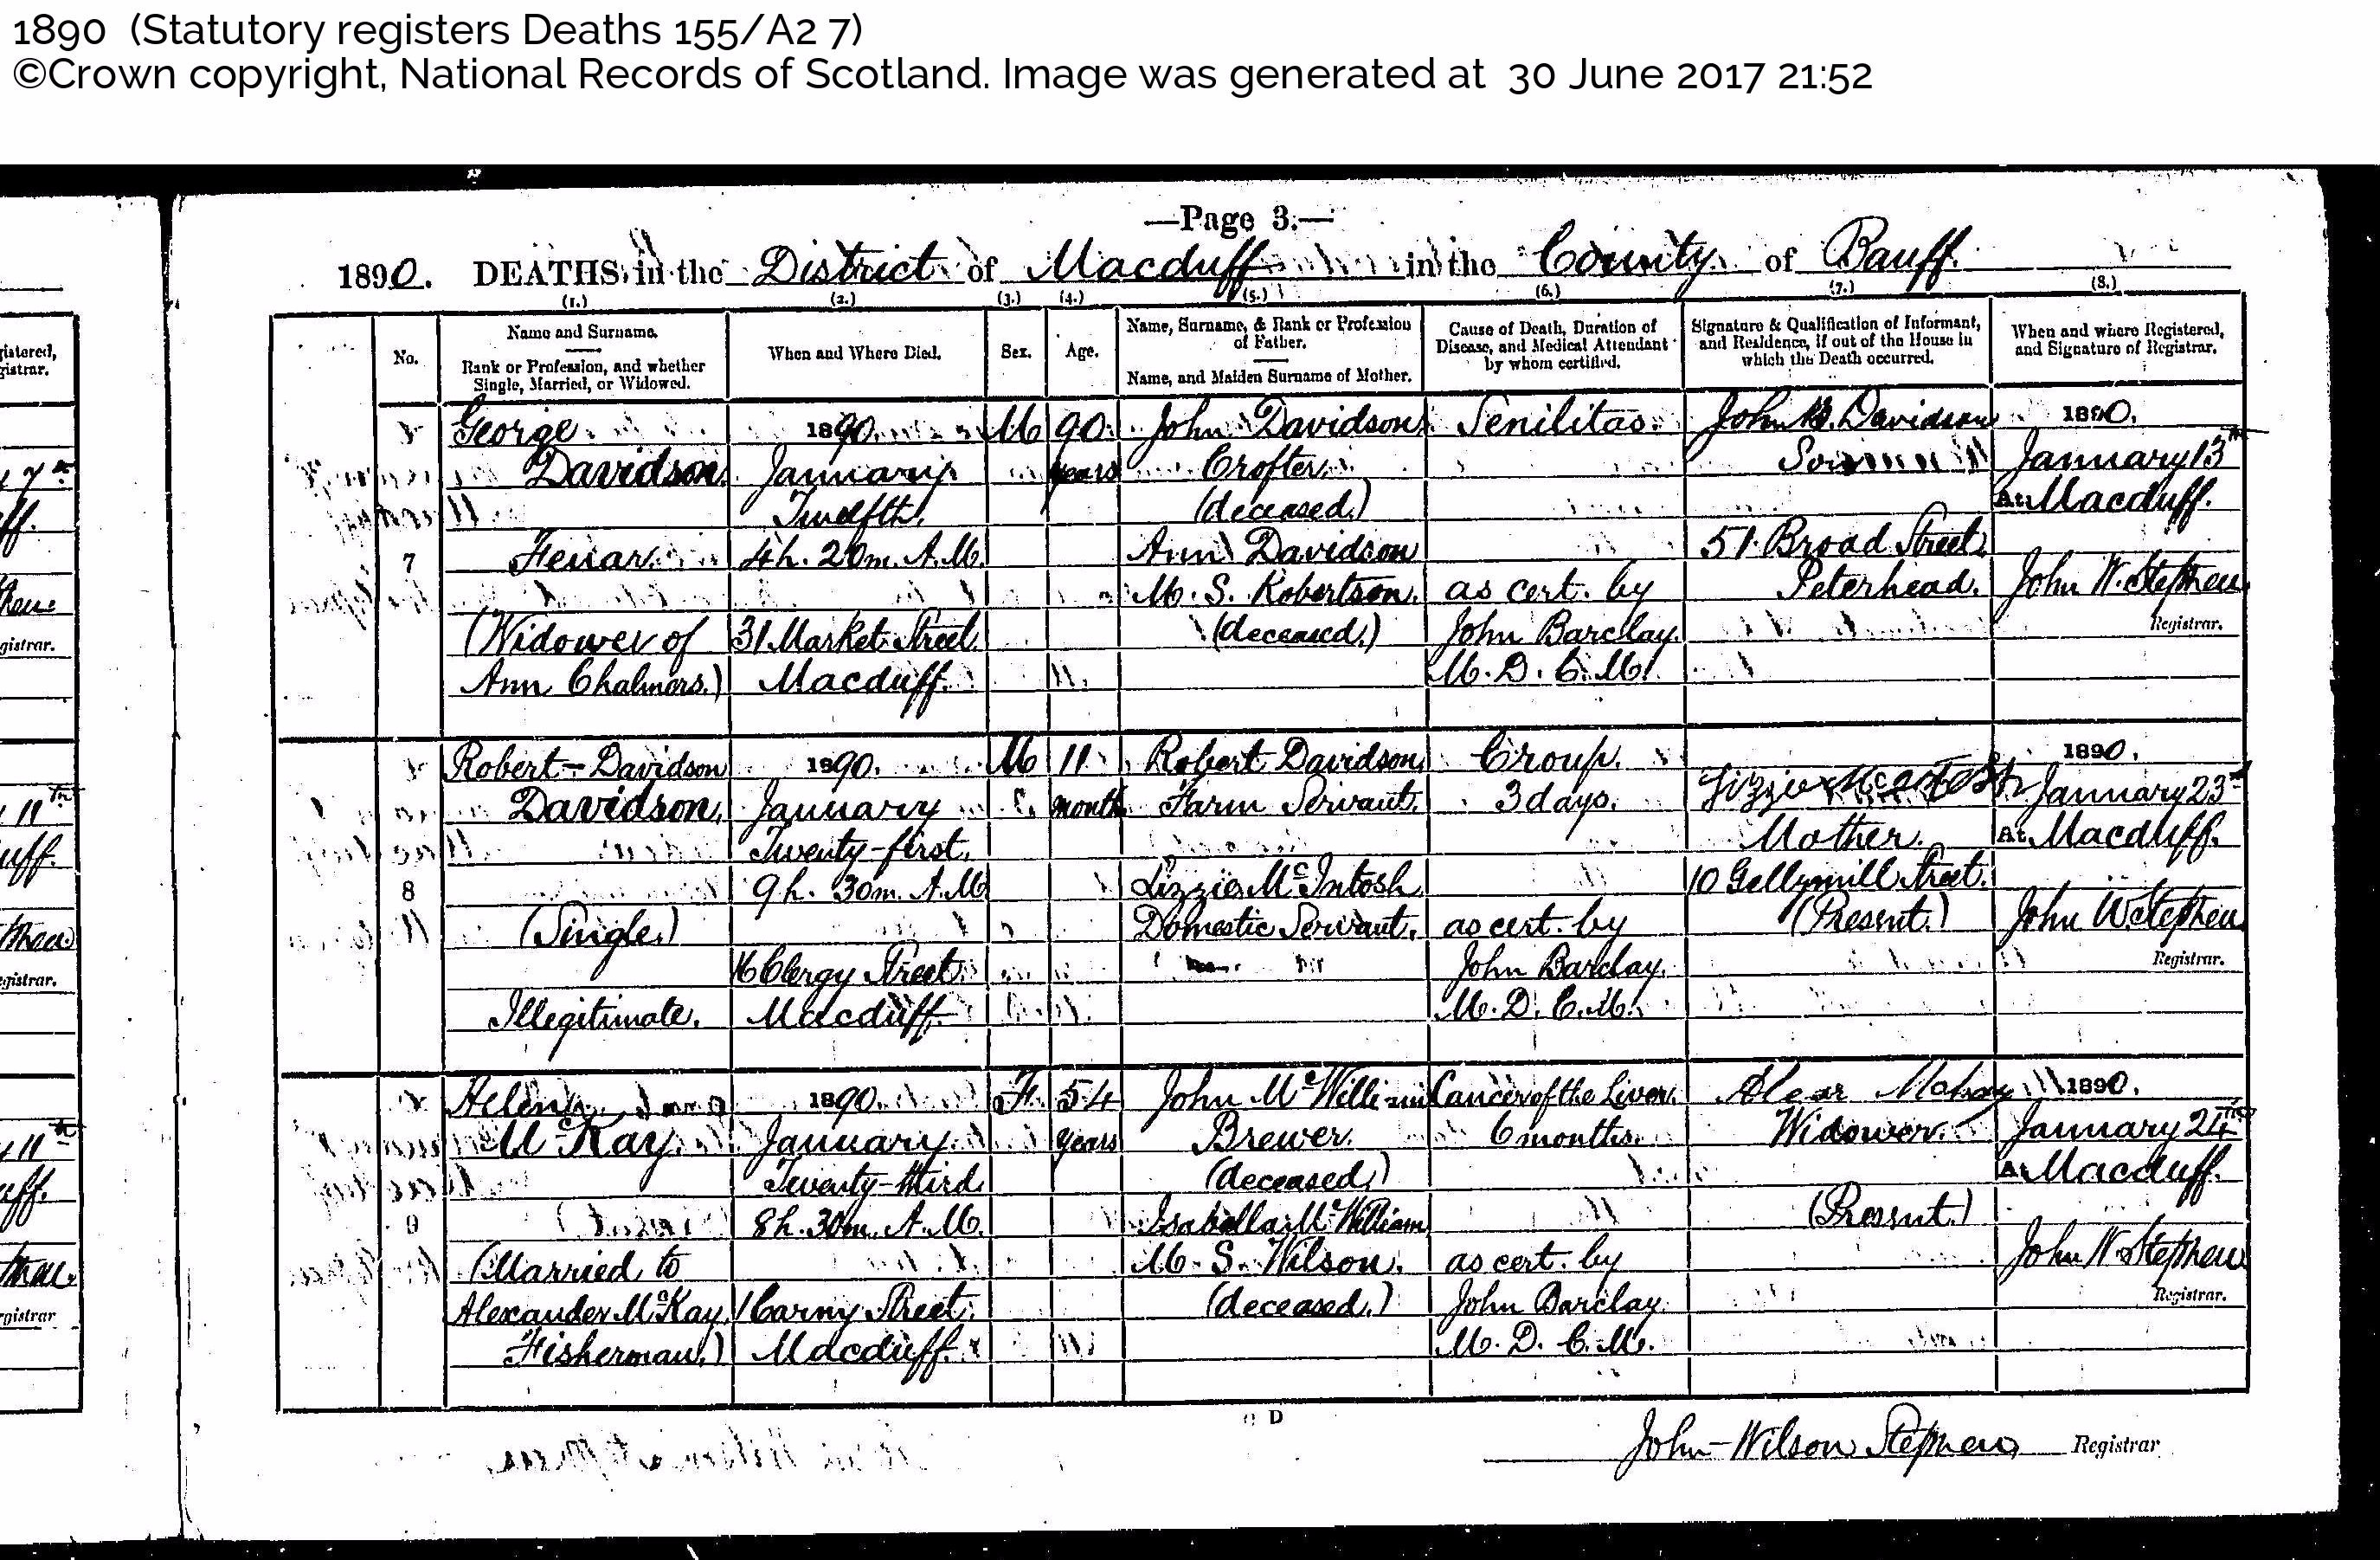 1890 (Statutory registers Deaths 155/A2 7)
©Crown copyright, National Records of Scotland. Image was generated at 30 June 2017 21:52
—Page 3.—
1890. DEATHS in the District of Macduff in the County of Banff.
(1.) (2.) (3.) (4.) (5.) (6.) (7.) (8.)
No.
Name and Surname.
Rank or Profession, and whether
Single, Married, or Widowed.
When and Where Died.
Sex.
Age.
Name, Surname, & Rank or Profession
of Father.
Name, and Maiden Surname of Mother.
Cause of Death, Duration of
Disease, and Medical Attendant
by whom certified.
Signature & Qualification of Informant,
and Residence, if out of the House in
which the Death occurred.
When and where Registered,
and Signature of Registrar.
7
George
Davidson
Feuar
(Widower of
Ann Chalmers.)
1890.
January
Twelfth.
4h. 20m. A.M.
31 Market Street
Macduff.
M
90
years
John Davidson
Crofter
(deceased.)
Ann Davidson
M. S. Robertson.
(deceased.)
Senilitas.
as cert. by
John Barclay
M. D. C. M.
John Davidson
Son
51 Broad Street
Peterhead.
1890.
January 13th
At Macduff.
John W. Stephen
Registrar.
8
Robert Davidson
Davidson.
(Single.)
Illegitimate.
1890.
January
Twenty-first.
9h. 30m. A.M.
16 Clergy Street
Macduff.
M
11
months
Robert Davidson
Farm Servant.
Lizzie McIntosh
Domestic Servant.
Croup.
3 days.
as cert. by
John Barclay.
M. D. C. M.
Lizzie McIntosh
Mother.
10 Gellymill Street.
(Present.)
1890.
January 23rd
At Macduff.
John W. Stephen
Registrar.
9
Helen
McKay
(Married to
Alexander McKay
Fisherman.)
1890.
January
Twenty-third
8h. 30m. A.M.
1 Carny Street
Macduff.
F.
54
years
John McWilliam
Brewer.
(deceased.)
Isabella McWilliam
M. S. Wilson.
(deceased.)
Cancer of the Liver.
6 months.
as cert. by
John Barclay
M. D. C. M.
Widower.
(Present.)
1890.
January 24th
At Macduff.
John W. Stephen
Registrar.
John Wilson Stephen Registrar